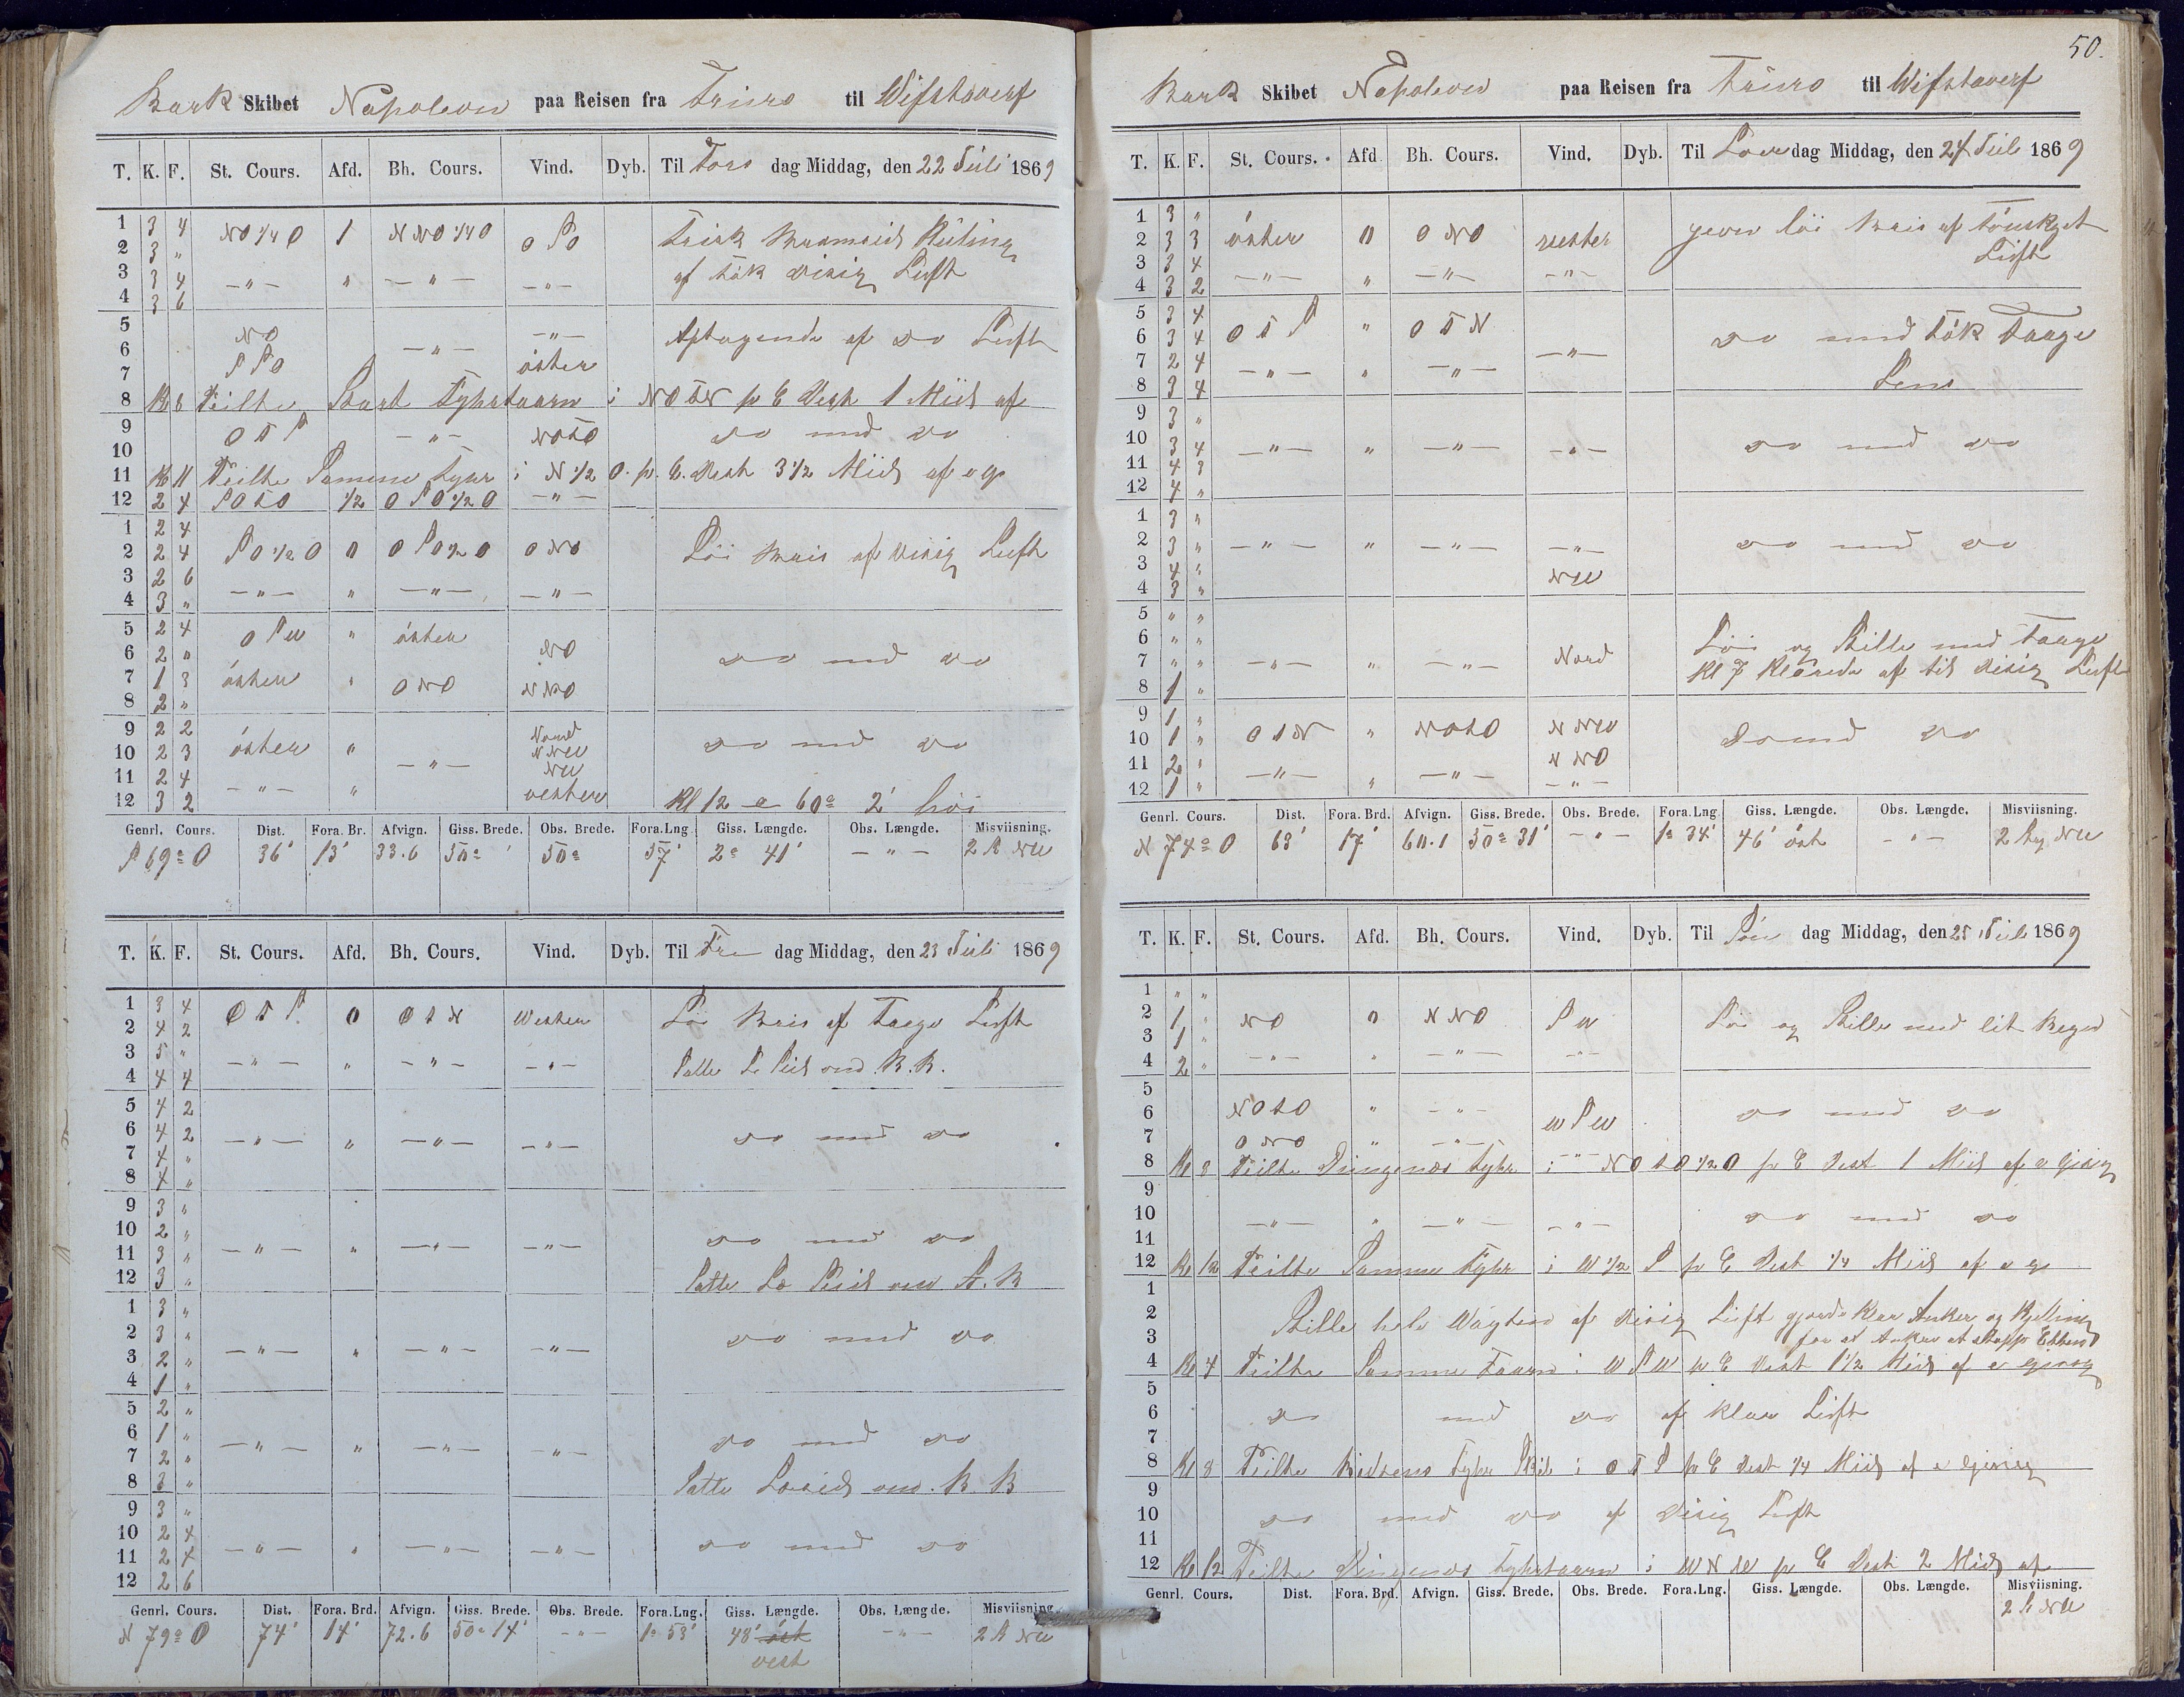 Bark Skibet Napoleon paa Reisen fra Truro til Wifstawerf
T. K. F. St. Cours. Afd. Bh. Cours. Vind. Dyb. Til Tors dag Middag, den 22 Juli 1869
1 3 4 NO 1/4 O 1 NNO 1/4 O O S O Frisk Bramseils Kuling
2 3 "
3 3 4 — " — " — " — — " — af tÿk disig Luft
4 3 6
5 NO — " — Aftagende af do Luft
6 — " —
7 S S O öster
8 Kl 8 Peilte Start Fyhrtaarn i NOTN pr C Dist 1 Miil af
9 O T S — " — NOTO do med do
10
11 Kl 11 Peilte Samme Fyhr i N 1/2 O. pr. C. Dist 3 1/2 Miil af og
12 2 4 SOTO 1/2 O S O 1/2 O — " —
1 2 4
2 2 4 SO 1/2 O 0 O SO 1/2 O ONO Löi Bris af disig Luft
3 2 6
4 3 " — " — " — " — — " —
5 2 4 O S W " öster
6 2 " NO do med do
7 1 3 öster " ONO NNO
8 2 "
9 2 2 Nord
10 2 3 öster " — " — NNW do med do
11 2 4 NW
12 3 2 — " — " vesten Kl 12 60° 2' höi
Genrl. Cours. Dist. Fora. Br. Afvign. Giss. Brede. Obs. Brede. Fora.Lng. Giss. Længde. Obs. Længde. Misviisning.
S 69° O 36' 13' 33.6 50° ' 50° 57' 2° 41' — " — 2 S NW
T. K. F. St. Cours. Afd. Bh. Cours. Vind. Dyb. Til Fre dag Middag, den 23 Juli 1869
1 3 4 O T S 0 O T N Westen Löi Bris af Taage Luft
2 4 2
3 5 " — " — " — " — — " —
4 4 4 Satte L Seil om B.B.
5 4 2
6 4 2 — " — " — " — — " — do med do
7 4 "
8 4 "
9 3 "
10 2 " do med do
11 3 " — " — " — " — — " —
12 3 " Satte Læ Seil om S.B
1 3 "
2 3 " — " — " — " — — " — do med do
3 2 "
4 1 "
5 2 "
6 1 " — " — " — " — — " — do med do
7 2 "
8 3 " Satte Læseil om B B
9 3 "
10 2 4 — " — " — " — — " — do med do
11 2 4
12 2 6
Genrl. Cours. Dist. Fora. Brd. Afvign. Giss. Brede. Obs. Brede. Fora.Lng. Giss. Længde. Obs. Længde. Misviisning.
N 79° O 74' 14' 72.6 50° 14' — " — 1° 53' 48' öst — " — 2 S NW
vest
50.
Bark Skibet Napoleon paa Reisen fra Truro til Wifstawerf
T. K. F. St. Cours. Afd Bh. Cours. Vind. Dyb. Til Löer dag Middag, den 24 Juli 1869
1 3 " jevn löi Bris af tönskyet
2 3 3 öster 0 ONO vester Luft
3 3 4
4 3 2 — " — " — " — — " —
5 3 4
6 3 4 O T S " O T N do med tök Taage
7 2 4 — " —
8 3 4 — " — " — " — Lens
9 3 "
10 3 4 — " — " — " — — " — do med do
11 4 3
12 4 "
1 3 "
2 3 " — " — " — " — — " — do med do
3 4 "
4 3 " NW
5 " "
6 " " Löi og Stille med Taage
7 " " — " — " — " — Nord Kl 7 Klarede af til disig Luft
8 1 "
9 1 "
10 1 " O T N " NOTO NNW do med do
11 2 " NNO
12 1 " — " — " — " — — " —
Genrl. Cours. Dist. Fora. Brd. Afvign. Giss. Brede. Obs. Brede. Fora.Lng Giss. Længde. Obs. Længde. Misviisning.
N 74° O 63' 17' 60.1 50° 31' — " — 1° 34' 46' öst — " — 2 NW
T. K. F. St. Cours. Afd. Bh. Cours. Vind. Dyb. Til Sön dag Middag, den 25 Juli 1869
1 " "
2 1 " NO 0 NNO S W Löi og Stille med lit Regn
3 1 "
4 2 " — " — " — " — — " —
5
6 NOTO " — " — W S W do med do
7 ONO " — " —
8 Kl 8 Peilte Dungenæs Fyhr i NOTO 1/2 O pr C Dist 1 Miil af Gisning
9
10 — " — " — " — — " — do med do
11
12 Kl 12 Peilte Samme Fyhr i W 1/2 S pr C Dist 1/4 Miil af
1
2 Stille hele Wagten af disig Luft gjorde klar Anker og Kjetting
3 for at Ankre at stoppe Ebben
4 Kl 4 Peilte Samme Taarn i W S W pr C Dist 1 1/2 Miil af gisning
5
6 do med do af klar Luft
7
8 Kl 8 Peilte Fyhr Skib i O T S pr C Dist 1/4 Miil af Gisning
9
10 do med do af disig Luft
11
12 Kl 12 Peilte Dungenæs Fyhrtaarn i W N W pr C Dist 2 Miil af
Genrl. Cours. Dist. Fora. Brd. Afvign. Giss. Brede. Obs. Brede. Fora.Lng. Giss. Længde. Obs. Længde. Misviisning.
2 S NW